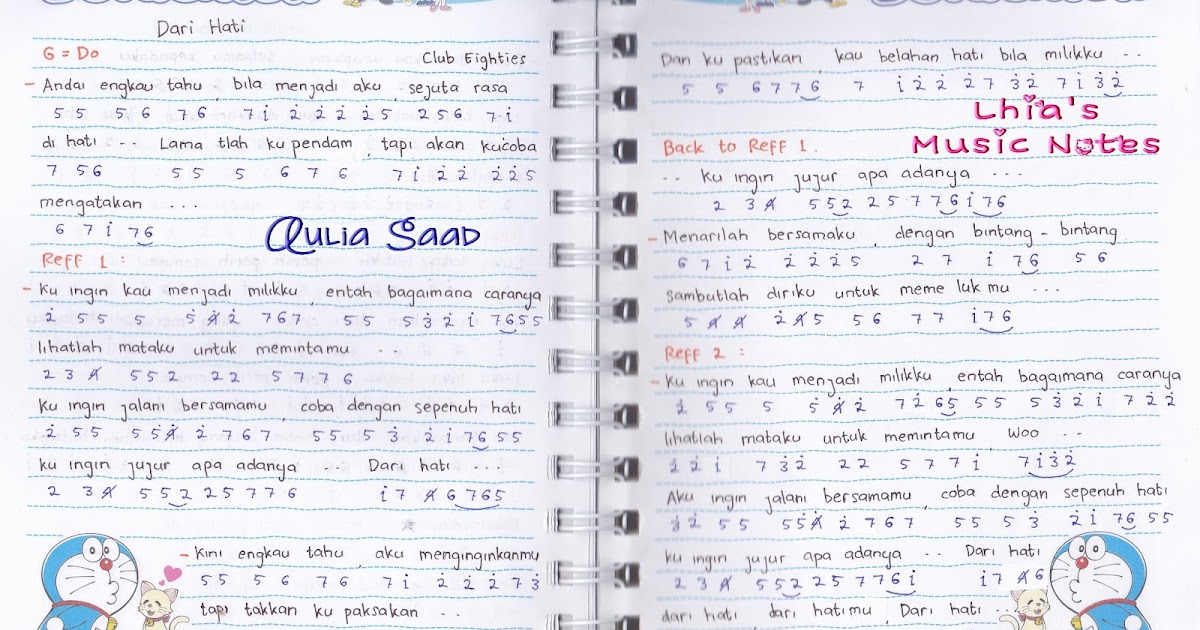 Dari Hati
G = Do
Club Eighties
- Andai engkau tahu , bila menjadi aku , sejuta rasa
5 5 5 6 7 6 7 i̇ 2̇ 2̇ 2̇ 2̇ 5 2 5 6 7 i̇
di hati .. Lama tlah ku pendam , tapi akan kucoba
7 5 6 5 5 5 6 7 6 7 i̇ 2̇ 2̇ 2̇ 2̇ 5
mengatakan ...
6 7 i̇ 7 6
Aulia Saad
Reff 1 :
- Ku ingin kau menjadi milikku , entah bagaimana caranya
2̇ 5 5 5 5̇ 4̸̇ 2̇ 7 6 7 5 5 5 3̇ 2̇ i̇ 7 6 5 5
lihatlah mataku untuk memintamu ..
2 3 4̸ 5 5 2 2 2 5 7 7 6
Ku ingin jalani bersamamu coba dengan sepenuh hati
2̇ 5 5 5 5 4̸̇ 2̇ 7 6 7 5 5 5 3̇ 2̇ i̇ 7 6 5 5
ku ingin jujur apa adanya .. Dari hati ...
2 3 4̸ 5 5 2 2 5 7 7 6 i̇ 7 4̸ 6 7 6 5
- Kini engkau tahu , aku menginginkanmu
5 5 5 6 7 6 7 i̇ 2̇ 2̇ 2̇ 7 3̇
tapi takkan ku paksakan ..
Dan ku pastikan , kau belahan hati bila milikku ..
5 5 6 7 7 6 7 i̇ 2̇ 2̇ 2̇ 7 3̇ 2̇ 7 i̇ 3̇ 2̇
Lhia's
Music Notes
Back to Reff 1 .
.. ku ingin jujur apa adanya ...
2 3 4̸ 5 5 2 2 5 7 7 6 i̇ 7 6
- Menarilah bersamaku , dengan bintang - bintang
6 7 i̇ 2̇ 2̇ 2̇ 2̇ 5 2 7 i̇ 7 6 5 6
sambutlah diriku untuk meme luk mu ...
5 4̸ 4̸ 2̇ 4̸ 5 5 6 7 7 i̇ 7 6
Reff 2 :
- Ku ingin kau menjadi milikku , entah bagaimana caranya
2̇ 5 5 5 5̇ 4̸̇ 2̇ 7 2̇ 6 5 5 5 5 3̇ 2̇ i̇ 7 2̇ 2̇
lihatlah mataku untuk memintamu woo ..
2̇ 2̇ i̇ 7 3̇ 2̇ 2 2 5 7 7 i̇ 7 i̇ 3̇ 2̇
Aku ingin jalani bersamamu , coba dengan sepenuh hati
3̇ 2̇ 5 5 5 5 4̸̇ 2̇ 7 6 7 5 5 5 3̇ 2̇ i̇ 7 6 5 5
ku ingin jujur apa adanya .. Dari hati
2 3 4̸ 5 5 2 2 5 7 7 6 i̇ i̇ 7 4̸ 6
dari hati , dari hatimu , Dari hati ...